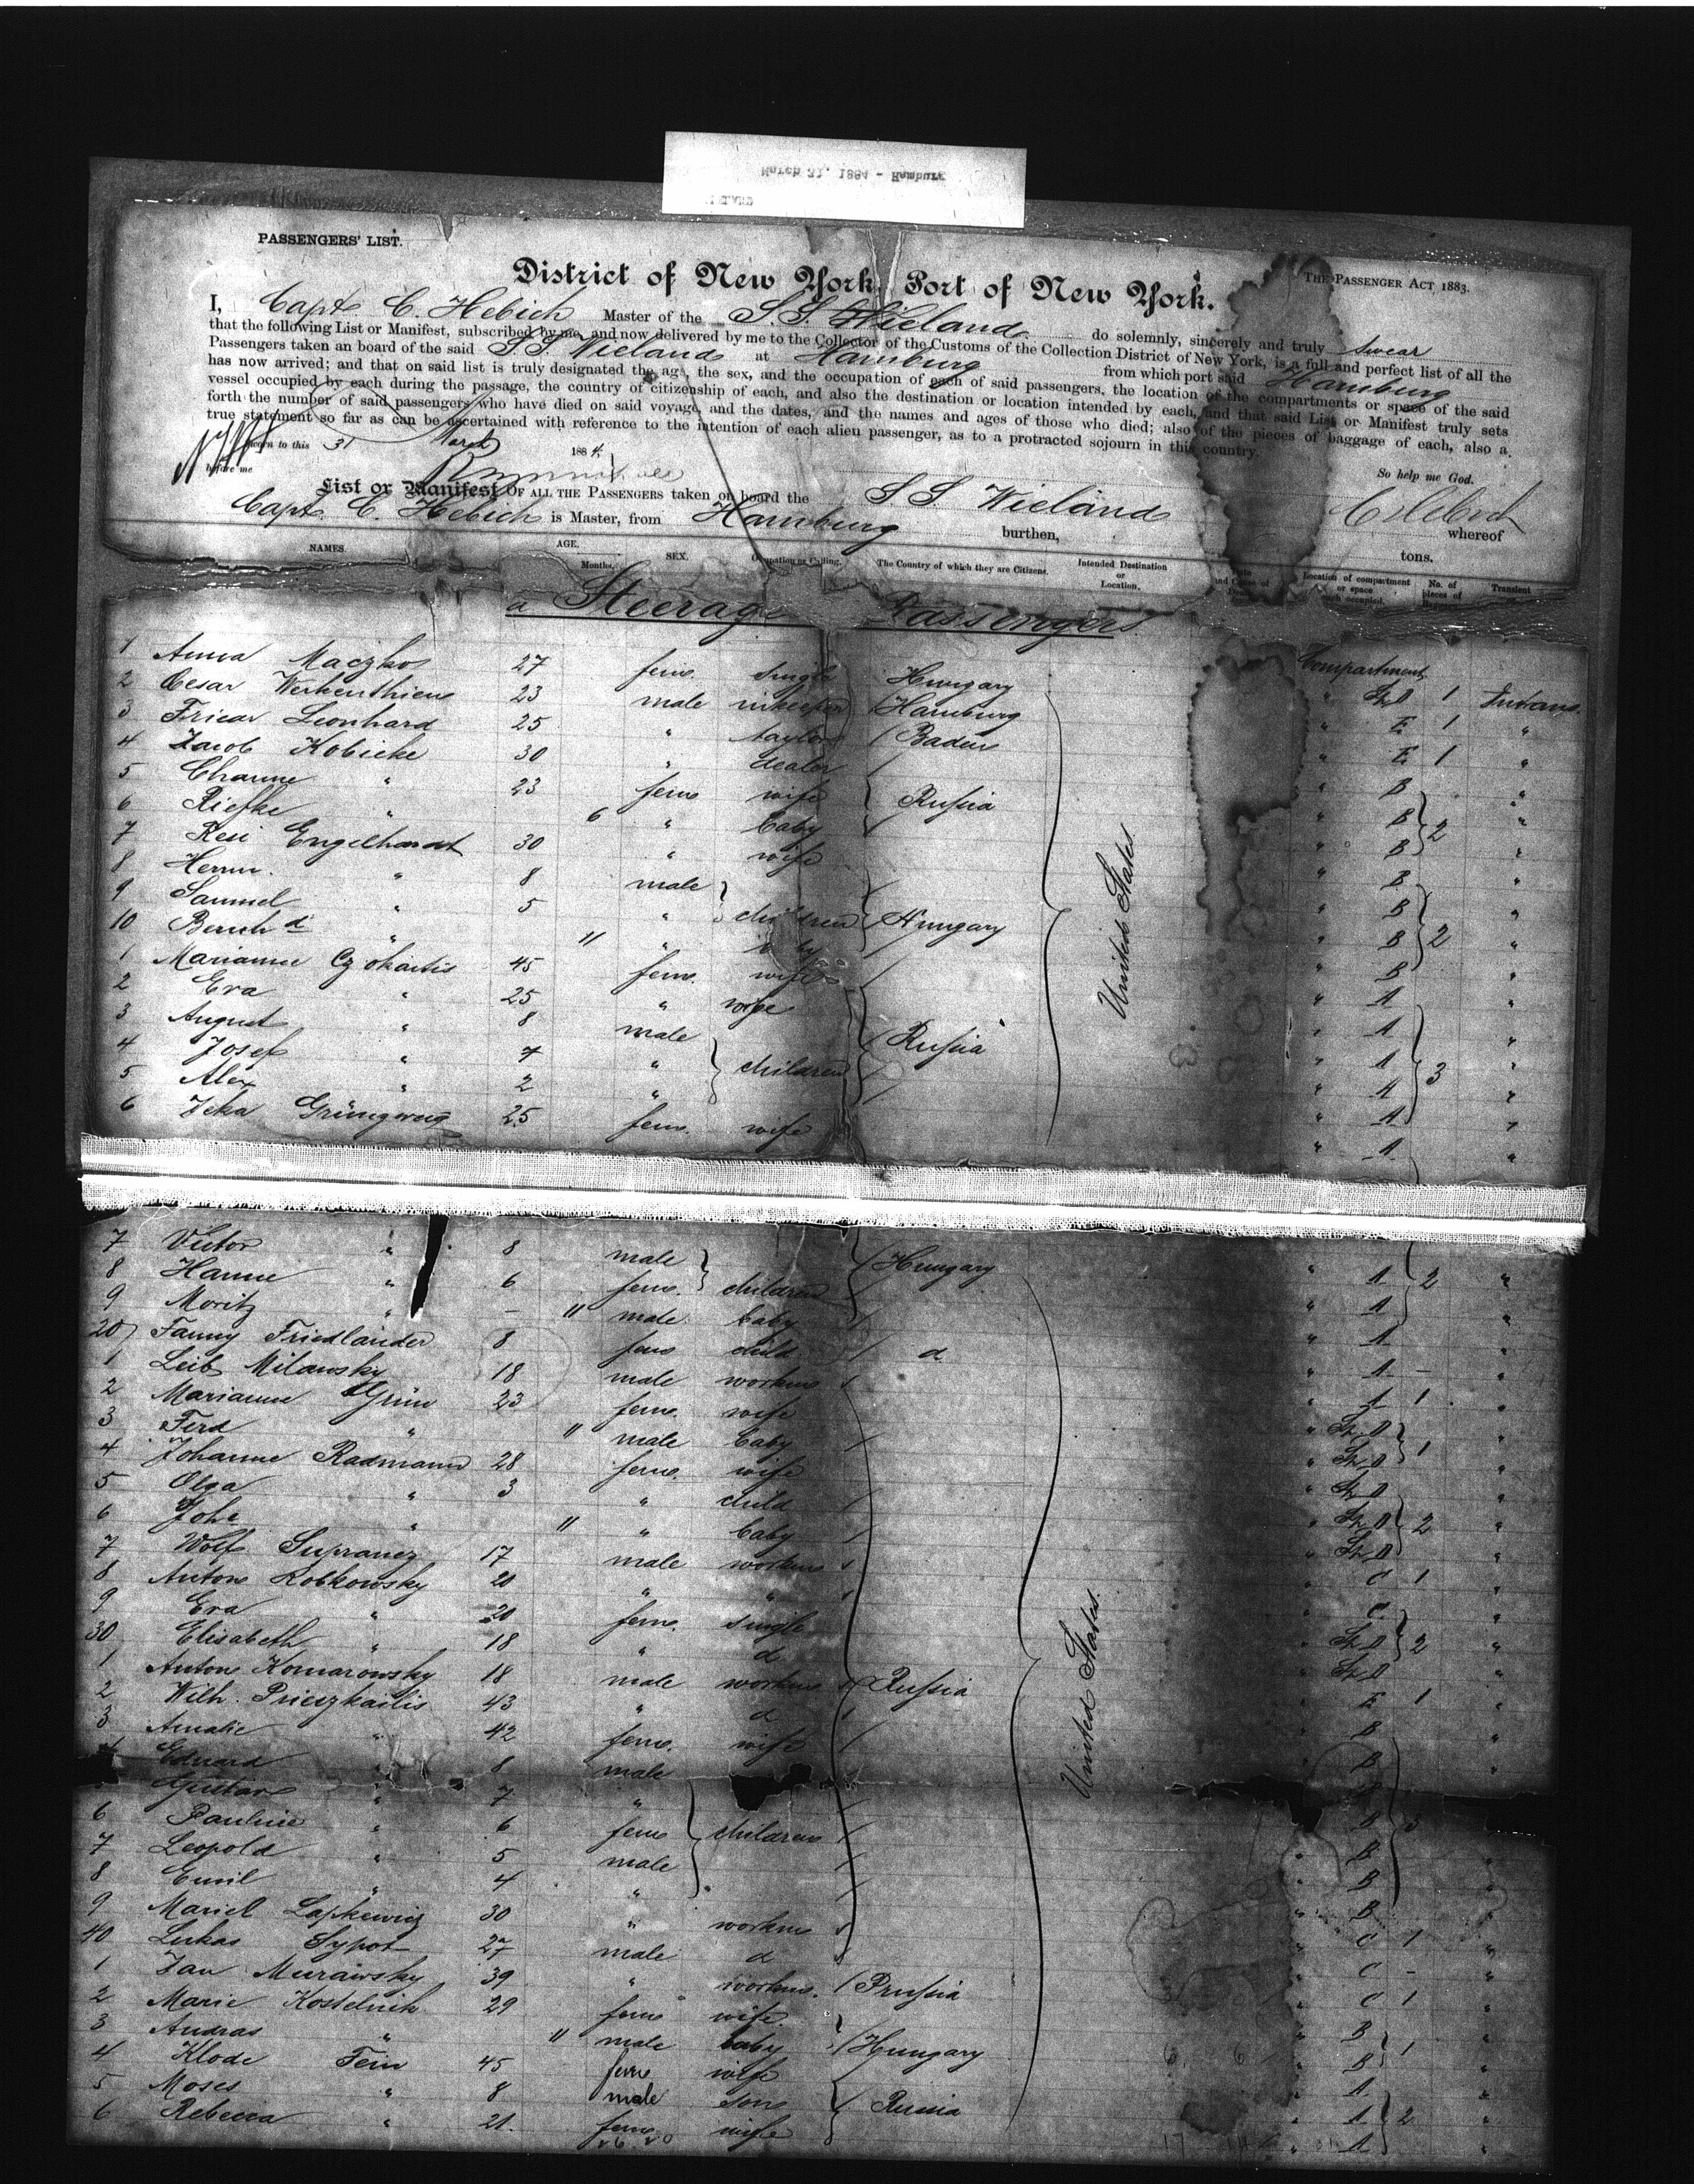 March 31, 1884 - Hamburg
PASSENGERS' LIST.
THE PASSENGER ACT 1883.
District of New York, Port of New York.
I, Capt. C. Hebich Master of the S.S. Wieland do solemnly, sincerely and truly swear
that the following List or Manifest, subscribed by me, and now delivered by me to the Collector of the Customs of the Collection District of New York, is a full and perfect list of all the
Passengers taken on board of the said S.S. Wieland at Hamburg from which port said Hamburg
has now arrived; and that on said list is truly designated the age, the sex, and the occupation of each of said passengers, the location of the compartments or space of the said
vessel occupied by each during the passage, the country of citizenship of each, and also the destination or location intended by each, and that said List or Manifest truly sets
forth the number of said passengers who have died on said voyage, and the dates, and the names and ages of those who died; also of the pieces of baggage of each, also a
true statement so far as can be ascertained with reference to the intention of each alien passenger, as to a protracted sojourn in this country.
Sworn to this 31 March 1884.
before me
So help me God.
C Hebich
List or Manifest OF ALL THE PASSENGERS taken on board the S.S. Wieland whereof
Capt. C. Hebich is Master, from Hamburg burthen, tons.
NAMES. AGE. Months. SEX. Occupation or Calling. The Country of which they are Citizens. Intended Destination or Location. Date and Cause of Location of compartment or space each occupied. No. of pieces of Baggage Transient
a Steerage Passengers
Compartment
1 Anna Maczko 27 fem. single Hungary 1
2 Cesar Werkenthien 23 male inkeeper Hamburg " E 1 "
3 Friedr Leonhard 25 " taylor Baden " E 1 "
4 Jacob Kobicke 30 " dealer " B "
5 Channe " 23 fem wife Russia " B "
6 Riefke " 6 " baby " B 2 "
7 Resi Engelhardt 30 " wife " B "
8 Herm. " 8 male " B "
9 Samuel " 5 " children Hungary " B 2 "
10 Bernhd " 11 " baby " B "
1 Marianne Czokaitis 45 fem. wife " A "
2 Eva " 25 " wife " A "
3 August " 8 male Russia " A "
4 Josef " 7 " children " A 3 "
5 Alex " 2 " " A "
6 Grüngweig 25 fem. wife " A "
United States
7 Victor " 8 male Hungary " A 2 "
8 Hanne " 6 fem. children " A "
9 Moritz " - 11 male baby " A "
20 Fanny Friedlander 8 fem child d " A - "
1 Leib Milawsky 18 male workm " A 1 "
2 Marianne Grün 23 fem. wife "
3 Ferd " 11 male baby 1 "
4 Johanne Radmann 28 fem. wife "
5 Olga " 3 " child 2 "
6 Johe " 11 " baby "
7 Wolf Supranez 17 male workm " C 1 "
8 Anton Robkowsky 20 " " " C "
9 Eva " 20 fem. single 2 "
30 Elisabeth " 18 " d "
1 Anton Komarowsky 18 male workm Russia " E 1 "
2 Wilh. Prieszkaitis 43 " d " B "
3 Amalie " 42 fem. wife " B "
4 Eduard " 8 male B
Gustav " 7 " B
6 Pauline " 6 fem children " B "
7 Leopold " 5 male " B "
8 Emil " 4 " " B "
9 Mariel Lapkewicz 30 " workm " C 1 "
40 Lukas Sypot 27 male d " C - "
1 Jan Murawsky 39 " workm. Prussia " C 1 "
2 Marie Kostelnik 29 fem wife. " B "
3 Andras " 11 male baby Hungary " B 1 "
4 Klode Fein 45 fem wife " A "
5 Moses " 8 male son Russia " A 2 "
6 Rebecca " 21. fem. wife " A "
United States.